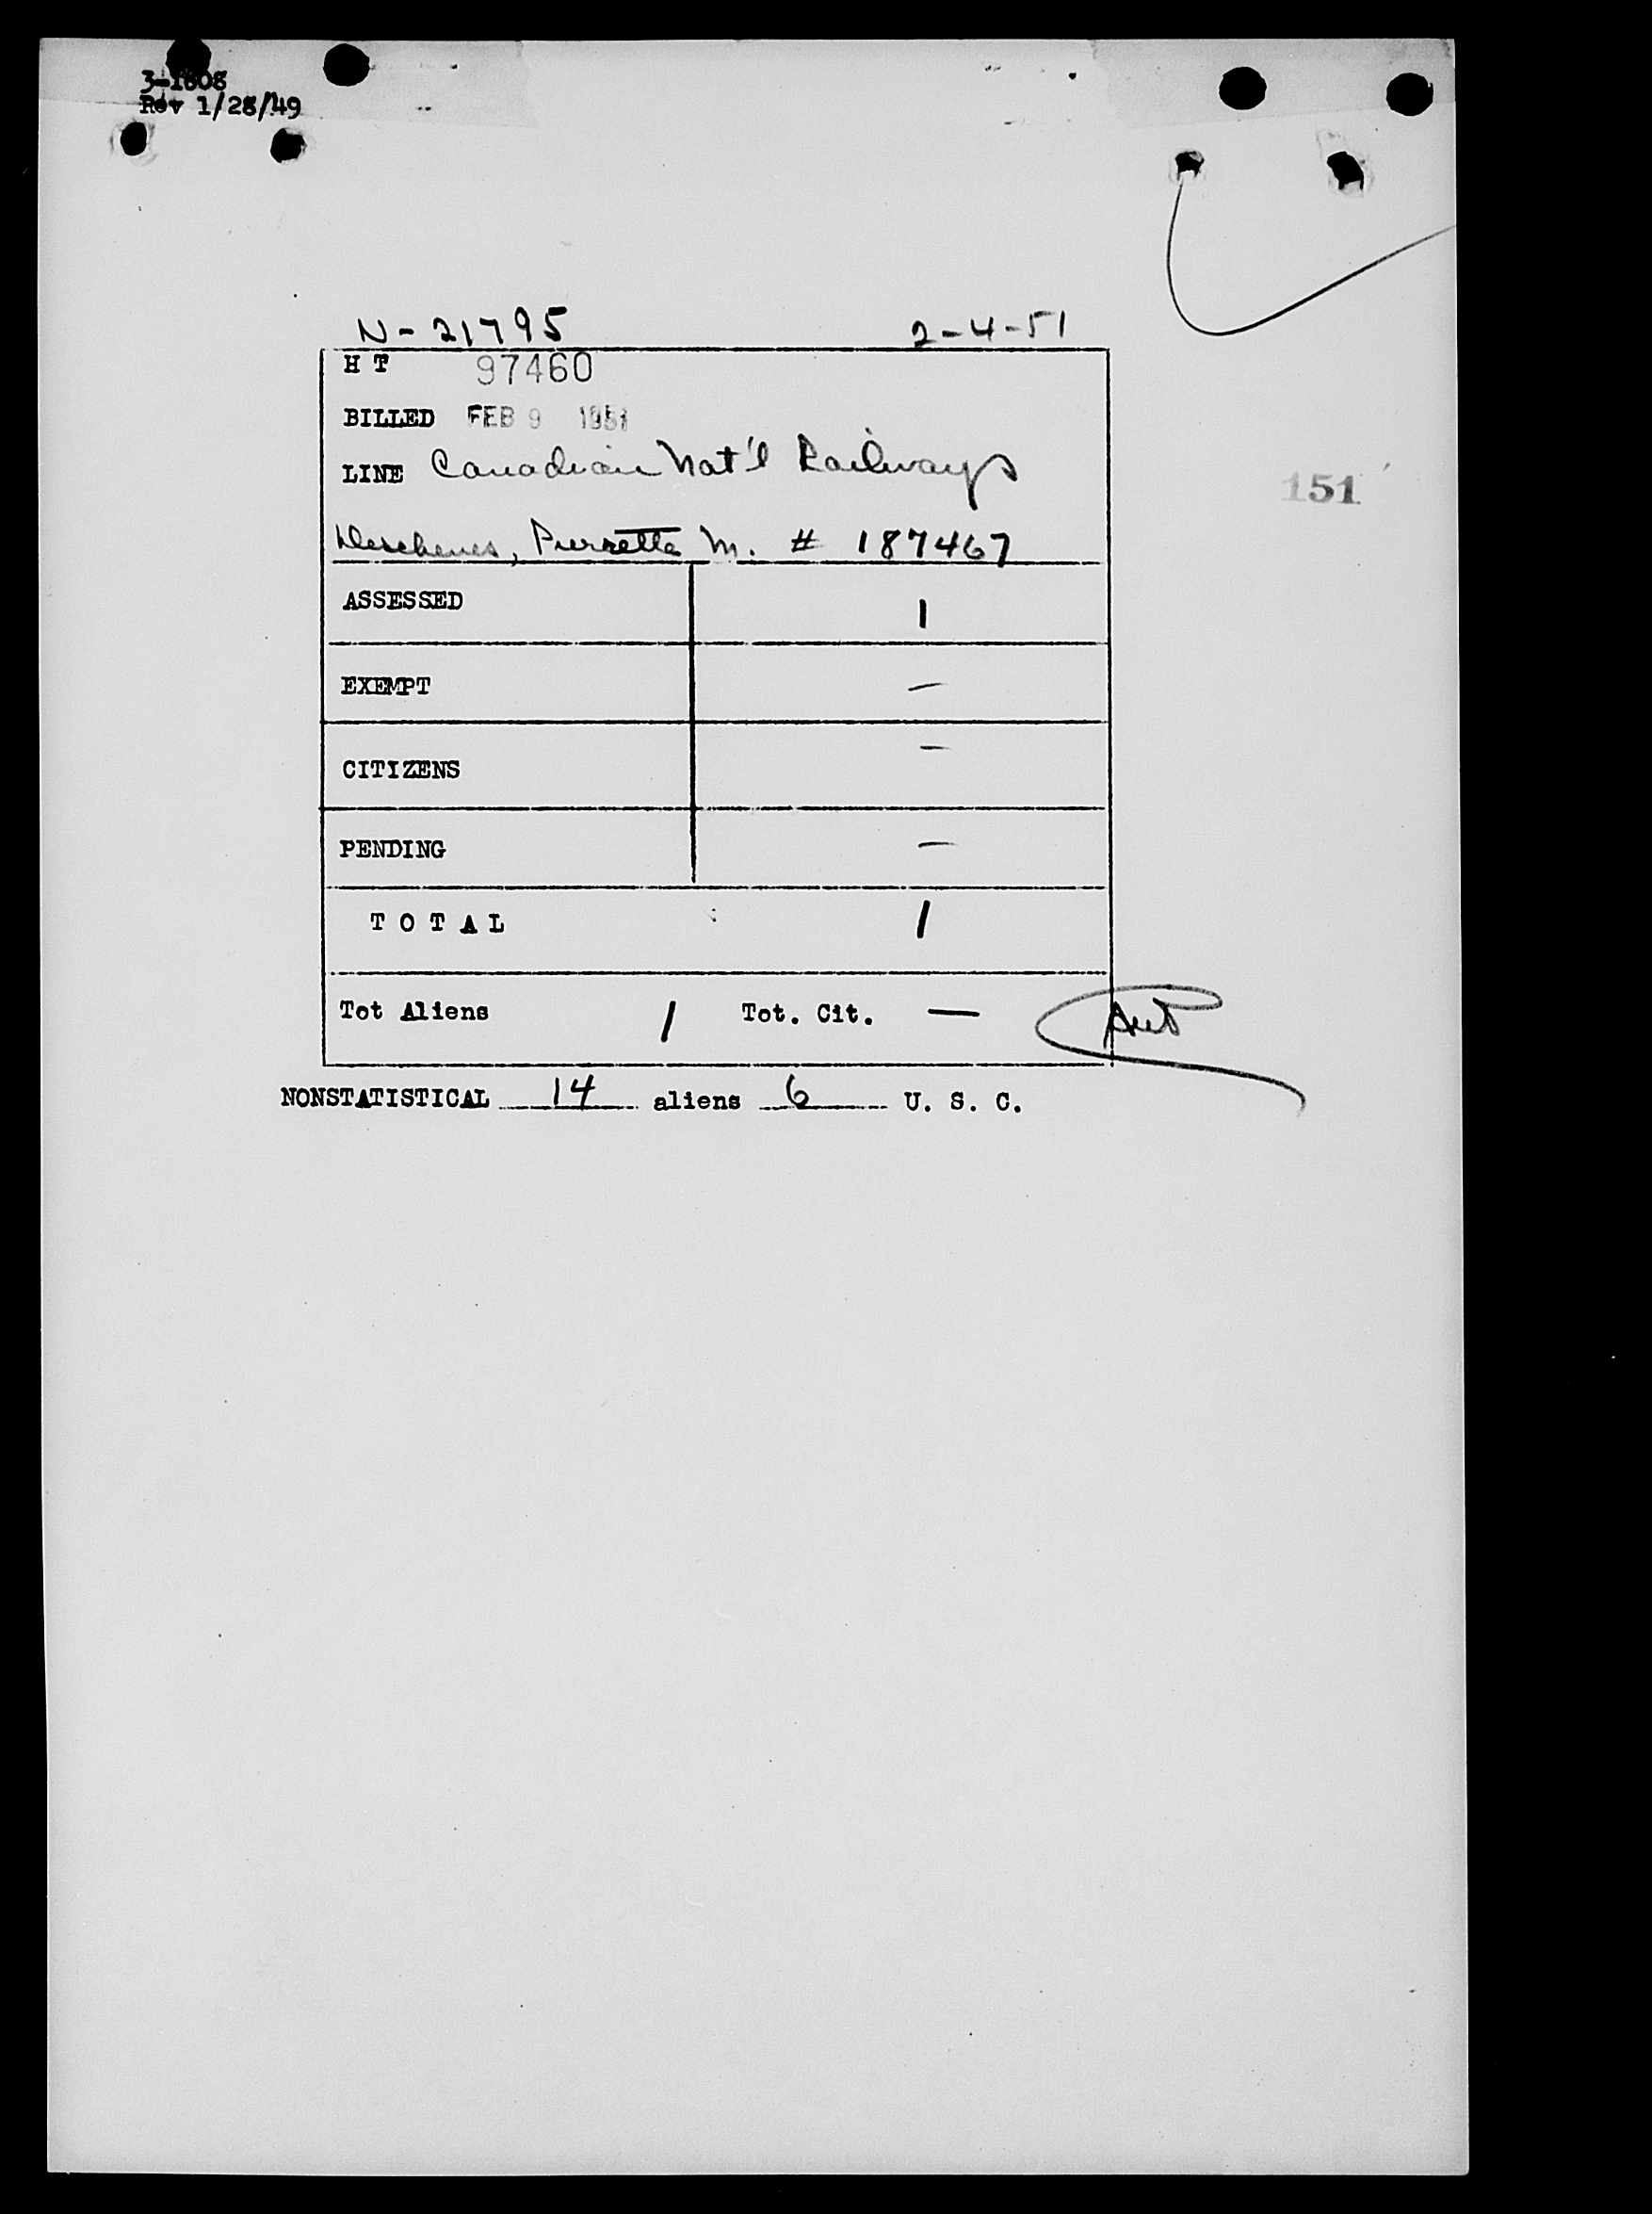 3-1808
Rev 1/28/49
N-21795 2-4-51
H T 97460
BILLED FEB 9 1951
LINE Canadian Nat'l Railways
151
Deschenes, Pierrette M. # 187467
ASSESSED 1
EXEMPT —
CITIZENS —
PENDING —
T O T A L 1
Tot Aliens 1 Tot. Cit. —
NONSTATISTICAL 14 aliens 6 U. S. C.